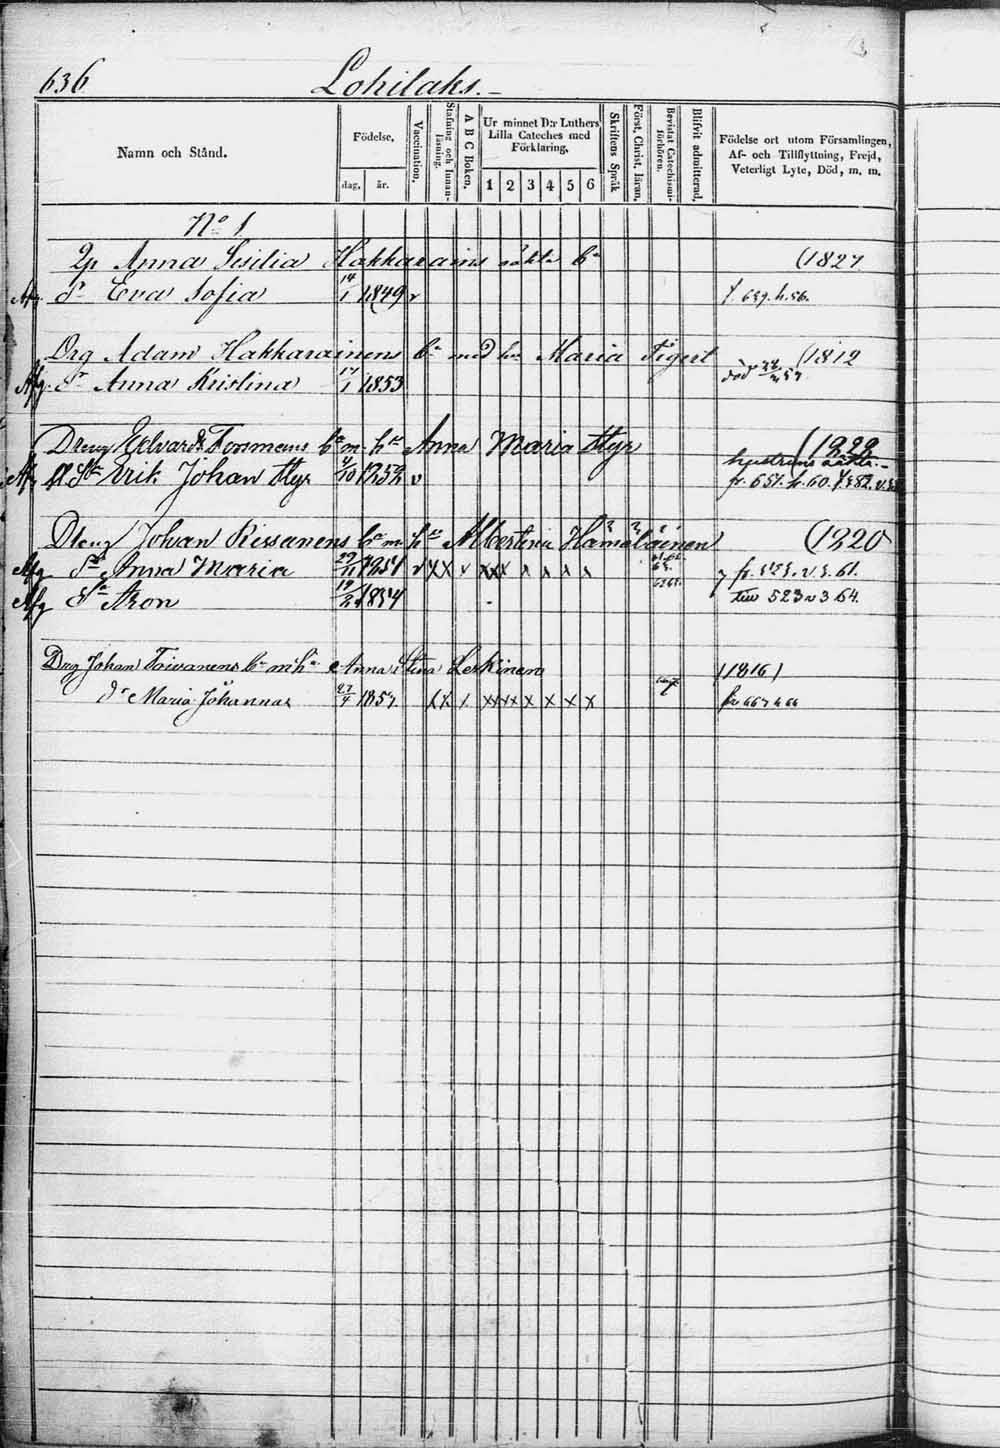 636 Lohilaks.
Namn och Stånd.
Födelse,
dag, år.
Vaccination.
Stafning och Innan-läsning.
A B C Boken.
Ur minnet D:r Luthers Lilla Cateches med Förklaring,
1 2 3 4 5 6
Skriftens Språk
Först, Christ. läran,
Bevistat Catechismi-förhören.
Blifvit admitterad.
Födelse ort utom Församlingen,
Af- och Tillflyttning, Frejd,
Veterligt Lyte, Död, m. m.
No 1.
Qp Anna Sisilia Hakkarains oäkta bn (1827
Afg. Dr Eva Sofia 14/1 1849 v f. 639. h. 56.
Drg Adam Hakkarainens bn med hu Maria Tigert (1812
Afg. Dr Anna Kristina 17/1 1853 död 57
Dreng Edvard Forsmans bn m. hu Anna Maria Hyr (1822
hustruns oäkta.
Afg Sn Erik Johan Hyr /10 1852 v fr. 651. h. 60. 582.
Dreng Johan Rissanens bn m. hu Albertina Hämäläinen (1820
Afg Dr Anna Maria 29/11 1851 v x x v x x x x x x x fr. 525. v. 3. 61.
Afg Sn Aron 19/2 1854 till 523 v 3 64.
Drg Johan Toivanens bn m hu Anna Stina Leskinen (1816)
dr Maria Johanna 27/4 1857 x x x x x x x x x x fr 667 h 66